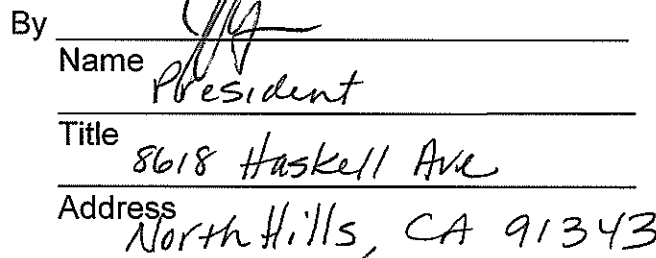 By
Name
President
Title
8618 Haskell Ave
Address
North Hills, CA 91343